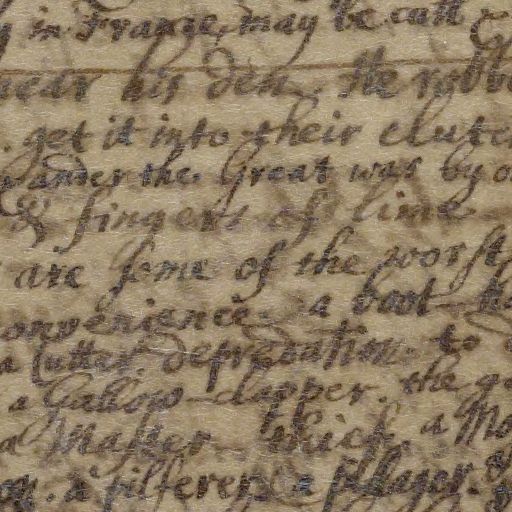 in France, may be call
near his den. The robb
get it into their clutch
ander the Great was by
& fingers of lime
are some of the worst
onvenience. a boot-ha
a Cutter. depredation. to
a Gallows-clapper. the ga
a Master thief. a Mo
a pilferer, a pillager.